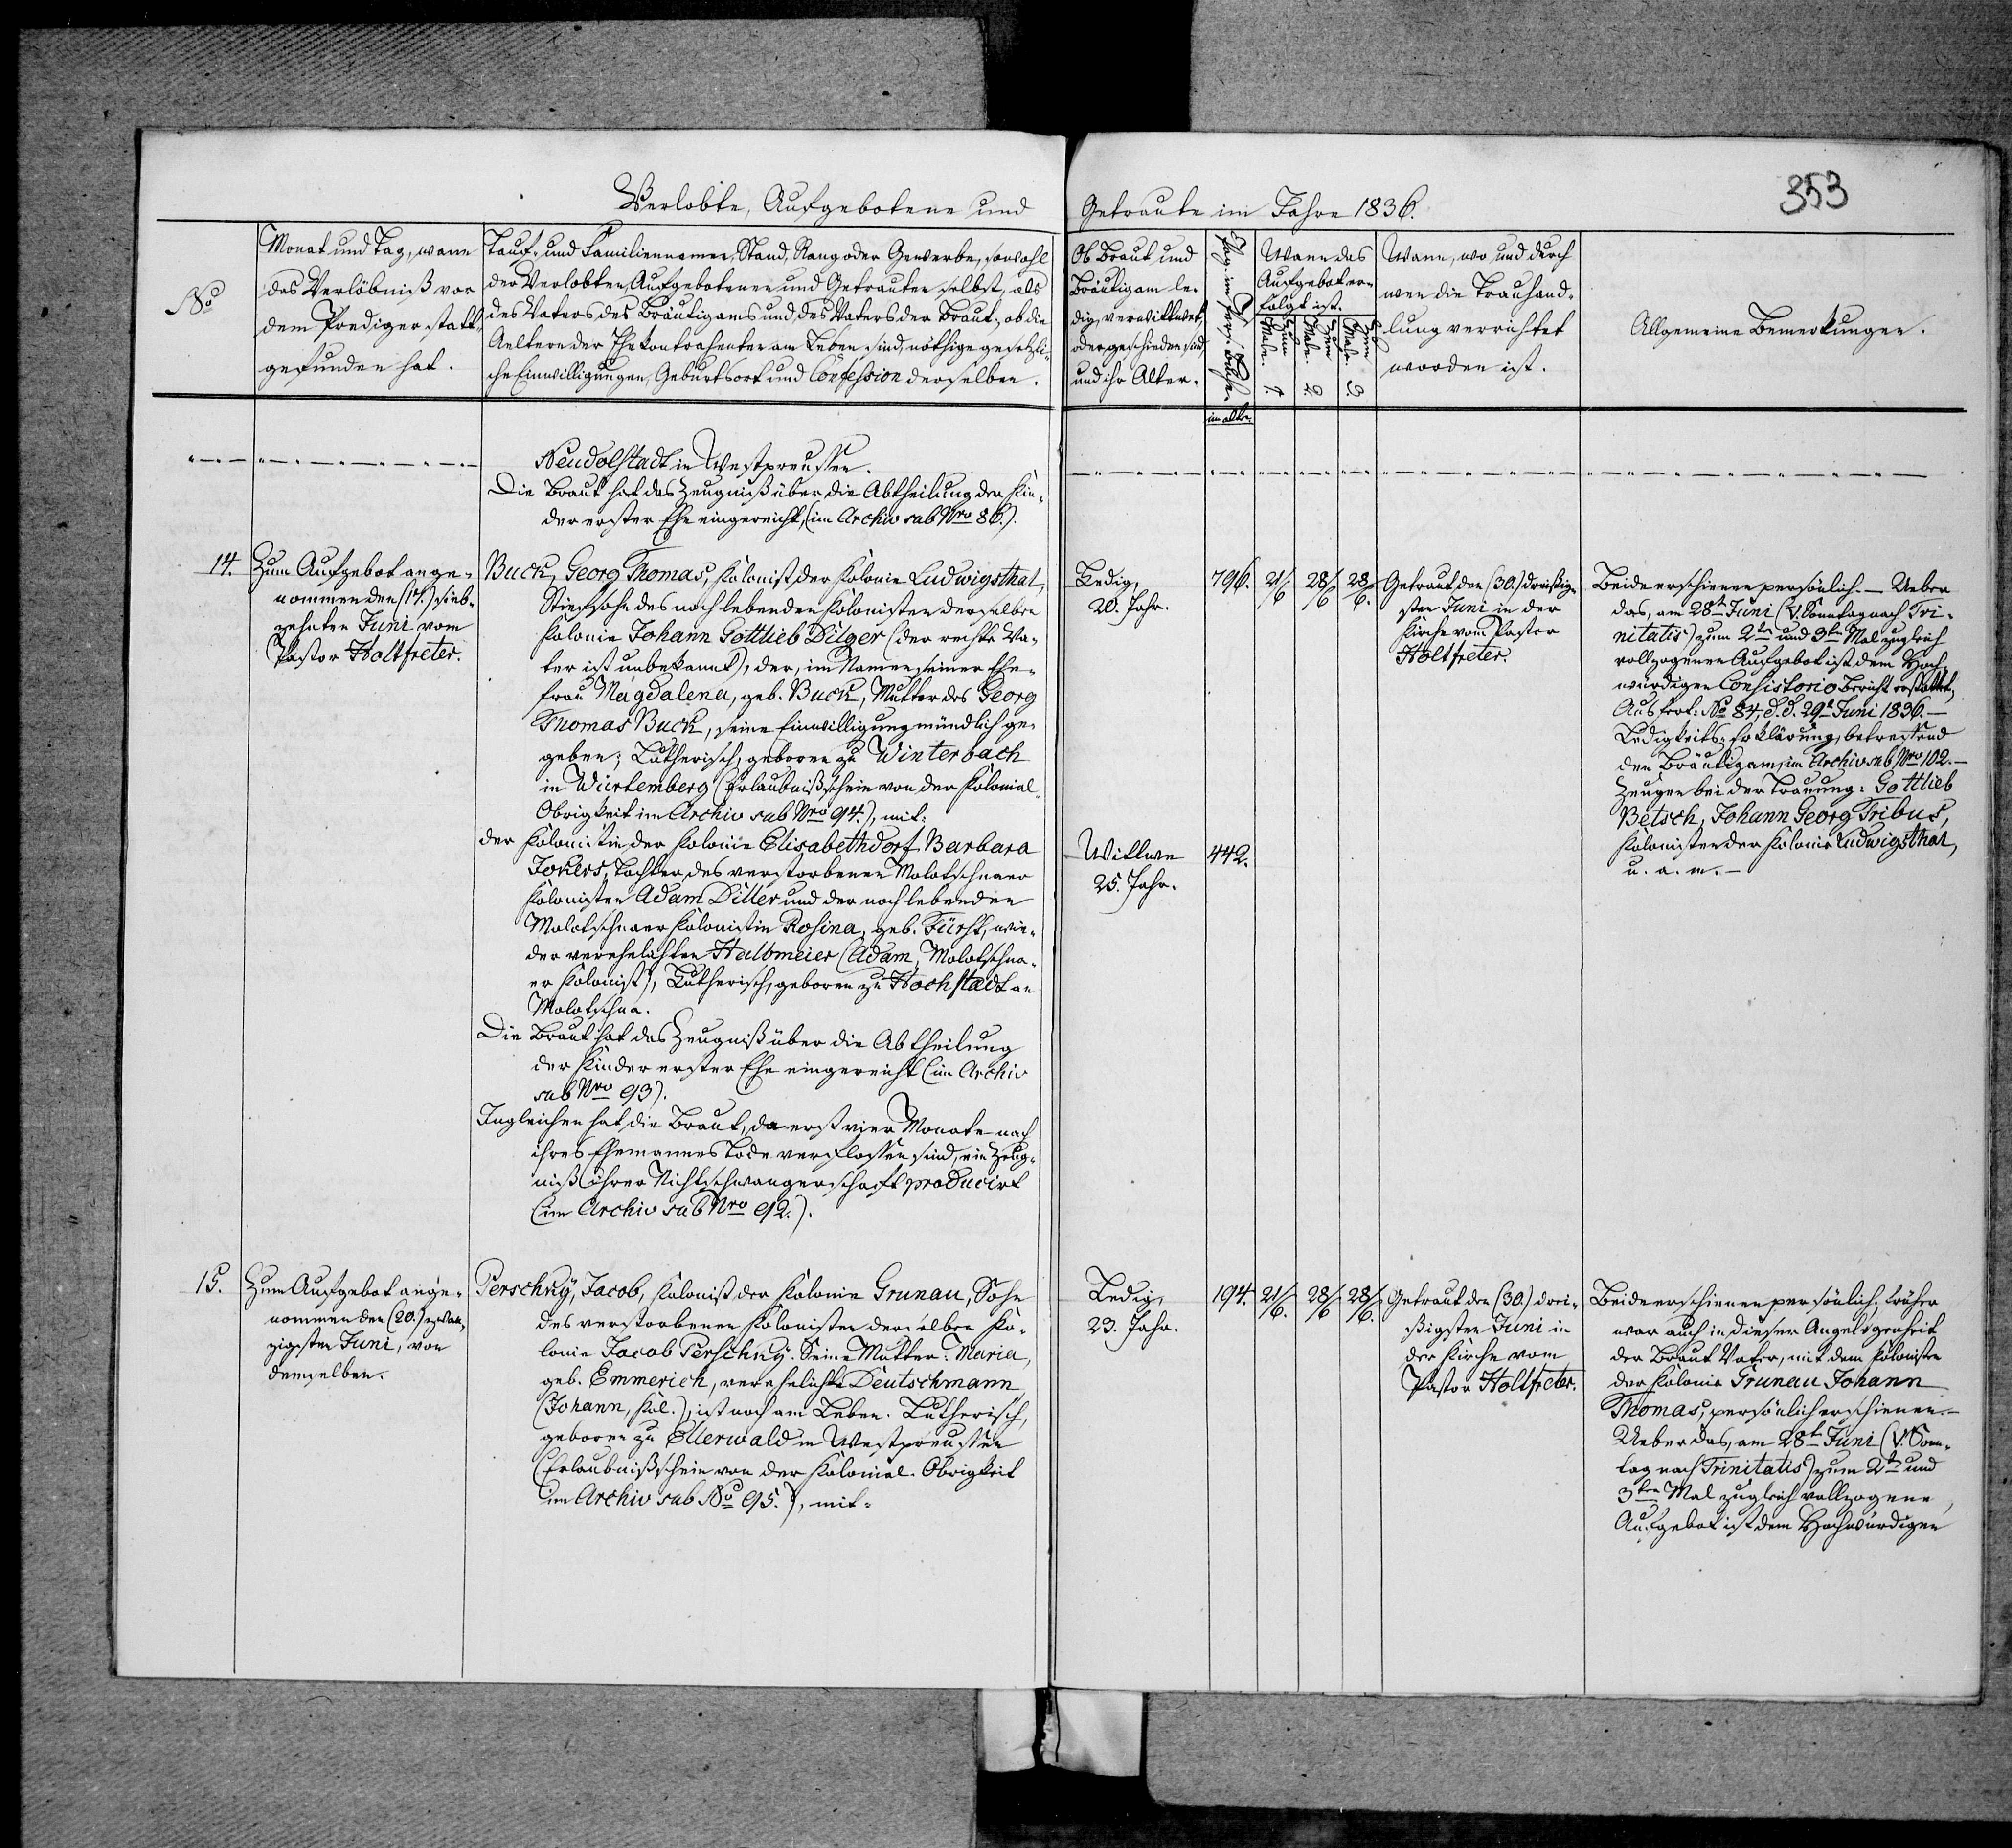 353
Verlobte, Aufgebotene und Getraute im Jahre 1836.
No
Monat und Tag, wann
das Verlöbniß vor
dem Prediger statt-
gefunden hat.
Tauf- und Familiennamen, Stand, Rang oder Gewerbe, sowohl
der Verlobten, Aufgebotenen und Getrauten selbst, als
des Vaters des Bräutigams und des Vaters der Braut, ob die
Aeltern der Ehekontrahenten am Leben sind, nöthige gesetzli-
che Einwilligungen, Geburtsort und Confession derselben.
Ob Braut und
Bräutigam le-
dig, verwittwet,
oder geschieden sind
und ihr Alter.
Pag. im Pers. Buche.
im alten
Wann das
Aufgebot er-
folgt ist.
Zum 1. Male.
Zum 2. Male.
Zum 3. Male.
Wann, wo und durch
wen die Trauhand-
lung verrichtet
worden ist.
Allgemeine Bemerkungen.
Neudolstadt in Westpreussen.
Die Braut hat das Zeugniß über die Abtheilung der Kin-
der erster Ehe eingereicht, (im Archiv sub Nro 86.).
14.
Zum Aufgebot ange-
nommen den (17.) sieb-
zehnten Juni vom
Pastor Holtfreter.
Buck, Georg Thomas, Kolonist der Kolonie Ludwigsthal,
Stiefsohn des noch lebenden Kolonisten derselben
Kolonie Johann Gottlieb Dilger (der rechte Va-
ter ist unbekannt), der, im Namen seiner Ehe-
frau Magdalena, geb. Buck, Mutter des Georg
Thomas Buck, seine Einwilligung mündlich ge-
geben; Lutherisch, geboren zu Winterbach
in Würtemberg (Erlaubnißschein von der Kolonial-
Obrigkeit im Archiv sub Nro 94.), mit:
der Kolonistin der Kolonie Elisabethdorf Barbara
Jokers, Tochter des verstorbenen Molotschnaer
Kolonisten Adam Diller und der noch lebenden
Molotschnaer Kolonistin Rosina, geb. Fürst, wie-
der verehelichten Halbmeier (Adam, Molotschna-
er Kolonist), Lutherisch, geboren zu Hochstadt an
Molotschna.
Die Braut hat das Zeugniß über die Abtheilung
der Kinder erster Ehe eingereicht (im Archiv
sub Nro 93).
Ingleichen hat die Braut, da erst vier Monate nach
ihres Ehemannes Tode verflossen sind, ein Zeug-
niß ihrer Nichtschwangerschaft producirt
(im Archiv sub Nro 92.).
Ledig,
20. Jahr.
796.
21/6
28/6
28/6.
Getraut den (30.) dreißig-
sten Juni in der
Kirche vom Pastor
Holtfreter.
Beide erschienen persönlich. — Ueber
das, am 28t Juni (V. Sonntag nach Tri-
nitatis) zum 2ten und 3ten Mal zugleich
vollzogenen Aufgebot ist dem Hoch-
würdigen Consistorio Bericht erstattet,
Ausfert: No 84, d. d. 29t Juni 1836. —
Ledigkeits-Erklärung, betreffend
den Bräutigam, im Archiv sub Nro 102. —
Zeugen bei der Trauung: Gottlieb
Betsch, Johann Georg Tribus,
Kolonisten der Kolonie Ludwigsthal,
u. a. m. —
Wittwe
25. Jahr.
442.
15.
Zum Aufgebot ange-
nommen den (20.) zwan-
zigsten Juni, von
demselben.
Perschky, Jacob, Kolonist der Kolonie Grunau, Sohn
des verstorbenen Kolonisten derselben Ko-
lonie Jacob Perschky. Seine Mutter: Maria,
geb. Emmerich, verehelichte Deutschmann
(Johann, Kol.), ist noch am Leben. Lutherisch,
geboren zu Ellerwald in Westpreussen
(Erlaubnißschein von der Kolonial-Obrigkeit
im Archiv sub No 95.), mit:
Ledig,
23. Jahr.
194.
21/6.
28/6
28/6.
Getraut den (30.) drei-
ßigsten Juni in
der Kirche vom
Pastor Holtfreter.
Beide erschienen persönlich, früher
war auch in dieser Angelegenheit
der Braut Vater, mit dem Koloniste
der Kolonie Grunau Johann
Thomas, persönlich erschienen. —
Ueber das, am 28t Juni (V. Sonn-
tag nach Trinitatis) zum 2ten und
3ten Mal zugleich vollzogene
Aufgebot ist dem Hochwürdigen